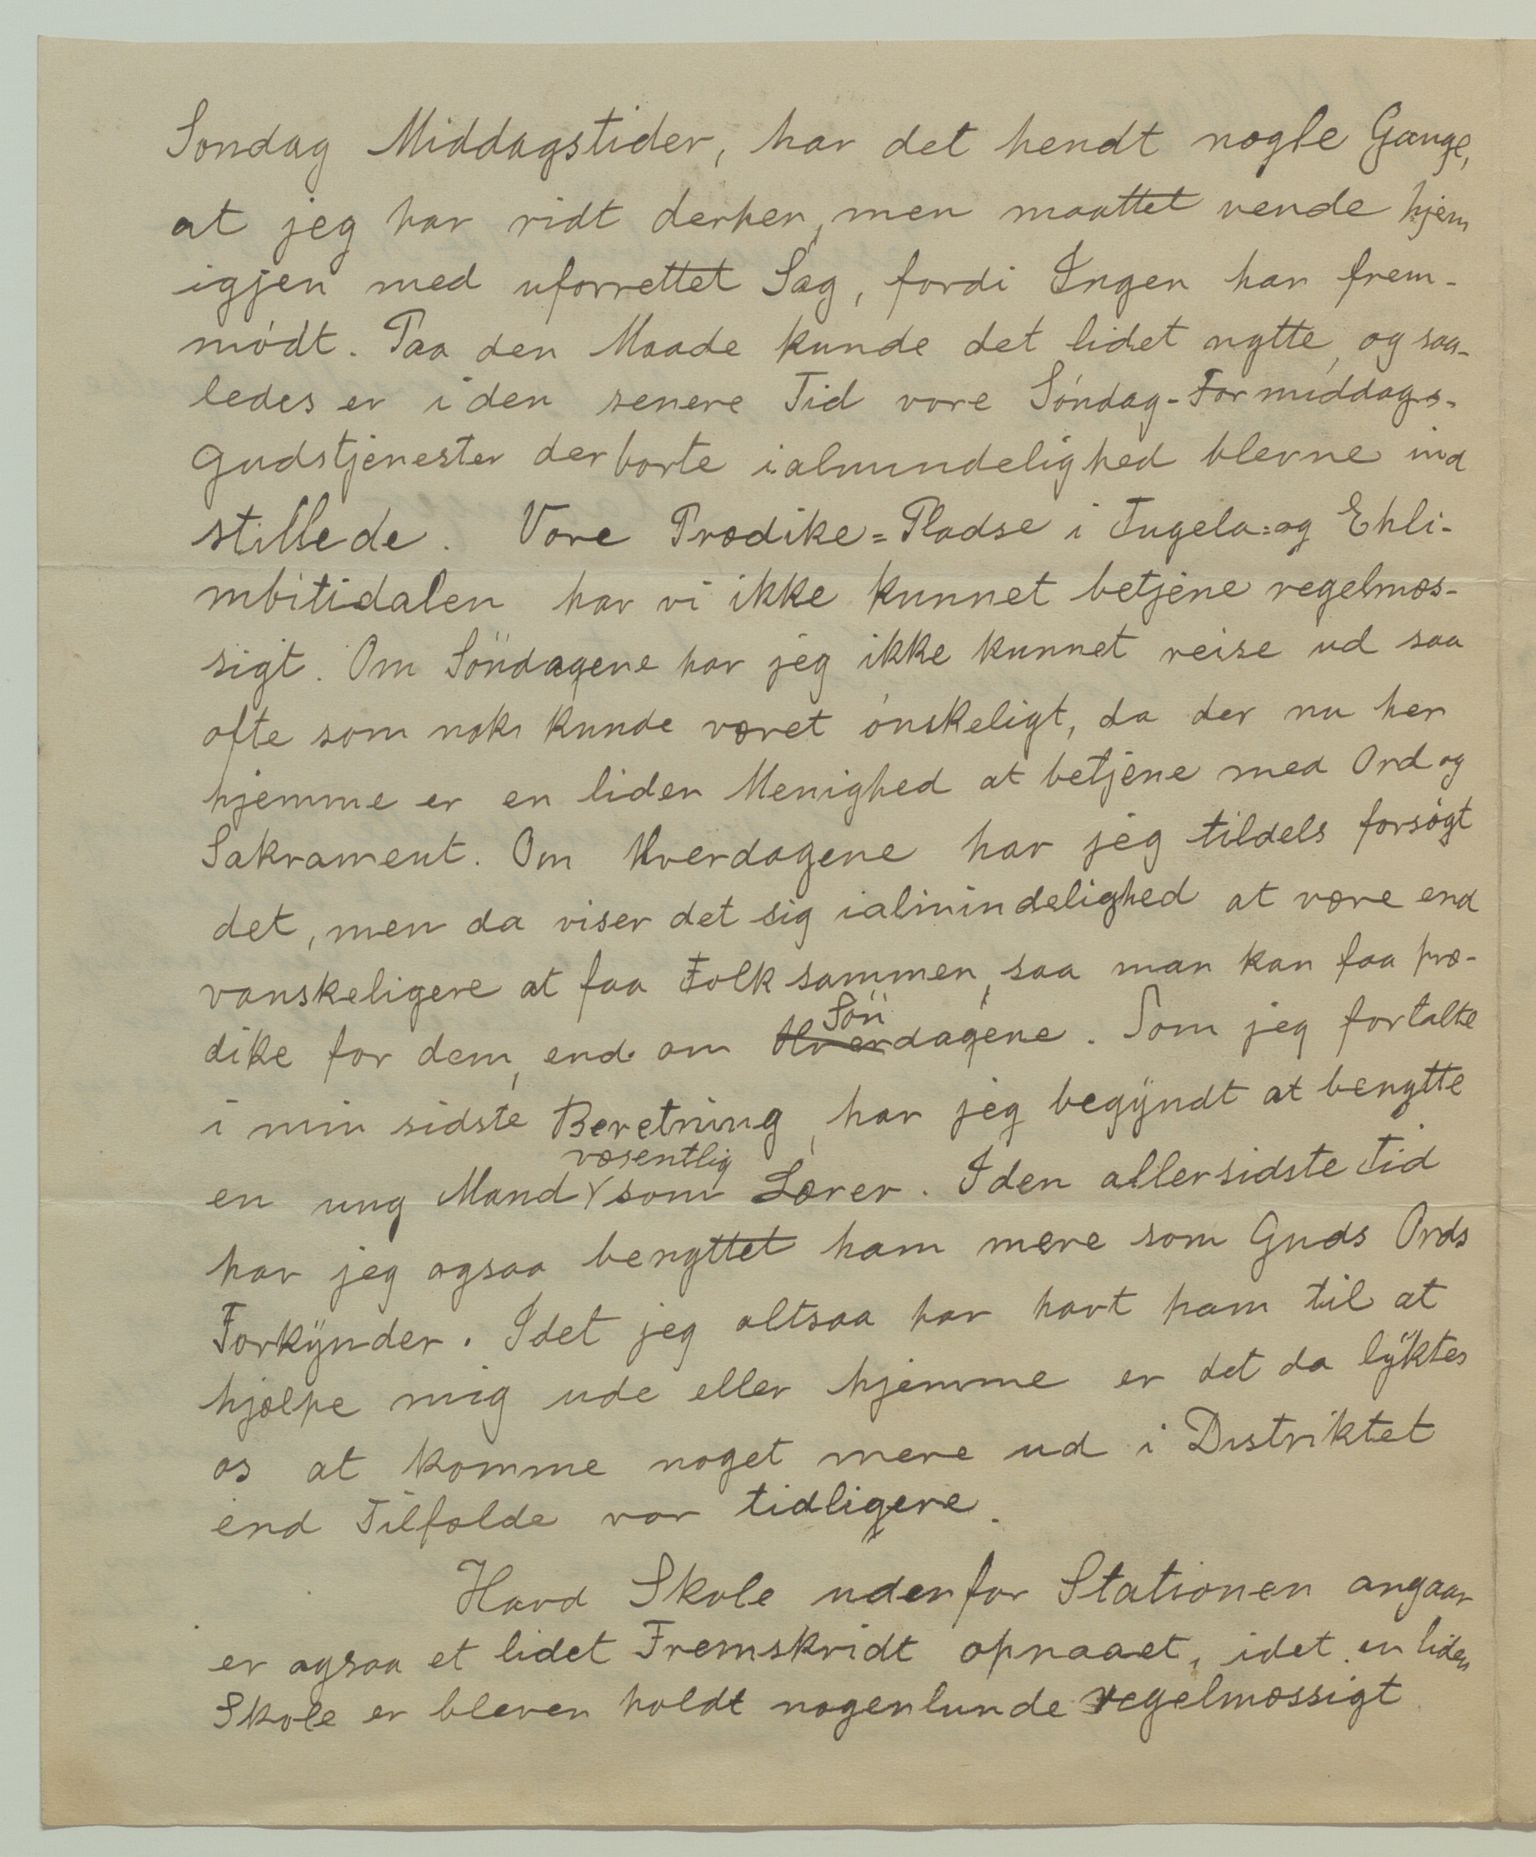 Søndag Middagstider, har det hendt nogle Gange,
at jeg har ridt derhen, men maattet vende hjem
igjen med uforrettet Sag, fordi Ingen har frem-
mødt. Paa den Maade kunde det lidet nytte, og saa-
ledes er i den senere Tid vore Söndag-Formiddags-
gudstjenester derborte ialmindelighed blevne ind
stillede. Vore Prædike=Pladse i Tugela= og Ehli-
mbitidalen har vi ikke kunnet betjene regelmæs-
sigt. Om Söndagene har jeg ikke kunnet reise ud saa
ofte som nok kunde været ønskeligt, da der nu her
hjemme er en liden Menighed at betjene med Ord og
Sakrament. Om Hverdagene har jeg tildels forsøgt
det, men da viser det sig ialmindelighed at være end
vanskeligere at faa Folk sammen, saa man kan faa præ-
dike for dem, end om ~~Hver~~ Söndagene. Som jeg fortalte
i min sidste Beretning, har jeg begÿndt at benytte
en ung Mand væsentlig som Lærer. I den allersidste Tid
har jeg ogsaa benyttet ham mere som Guds Ords
Forkÿnder. Idet jeg altsaa har havt ham til at
hjælpe mig ude eller hjemme er det da lÿktes
os at komme noget mere ud i Distriktet
end Tilfælde var tidligere.
Hvad Skole udenfor Stationen angaar
er ogsaa et lidet Fremskridt opnaaet, idet en liden
Skole er bleven holdt nogenlunde regelmæssigt